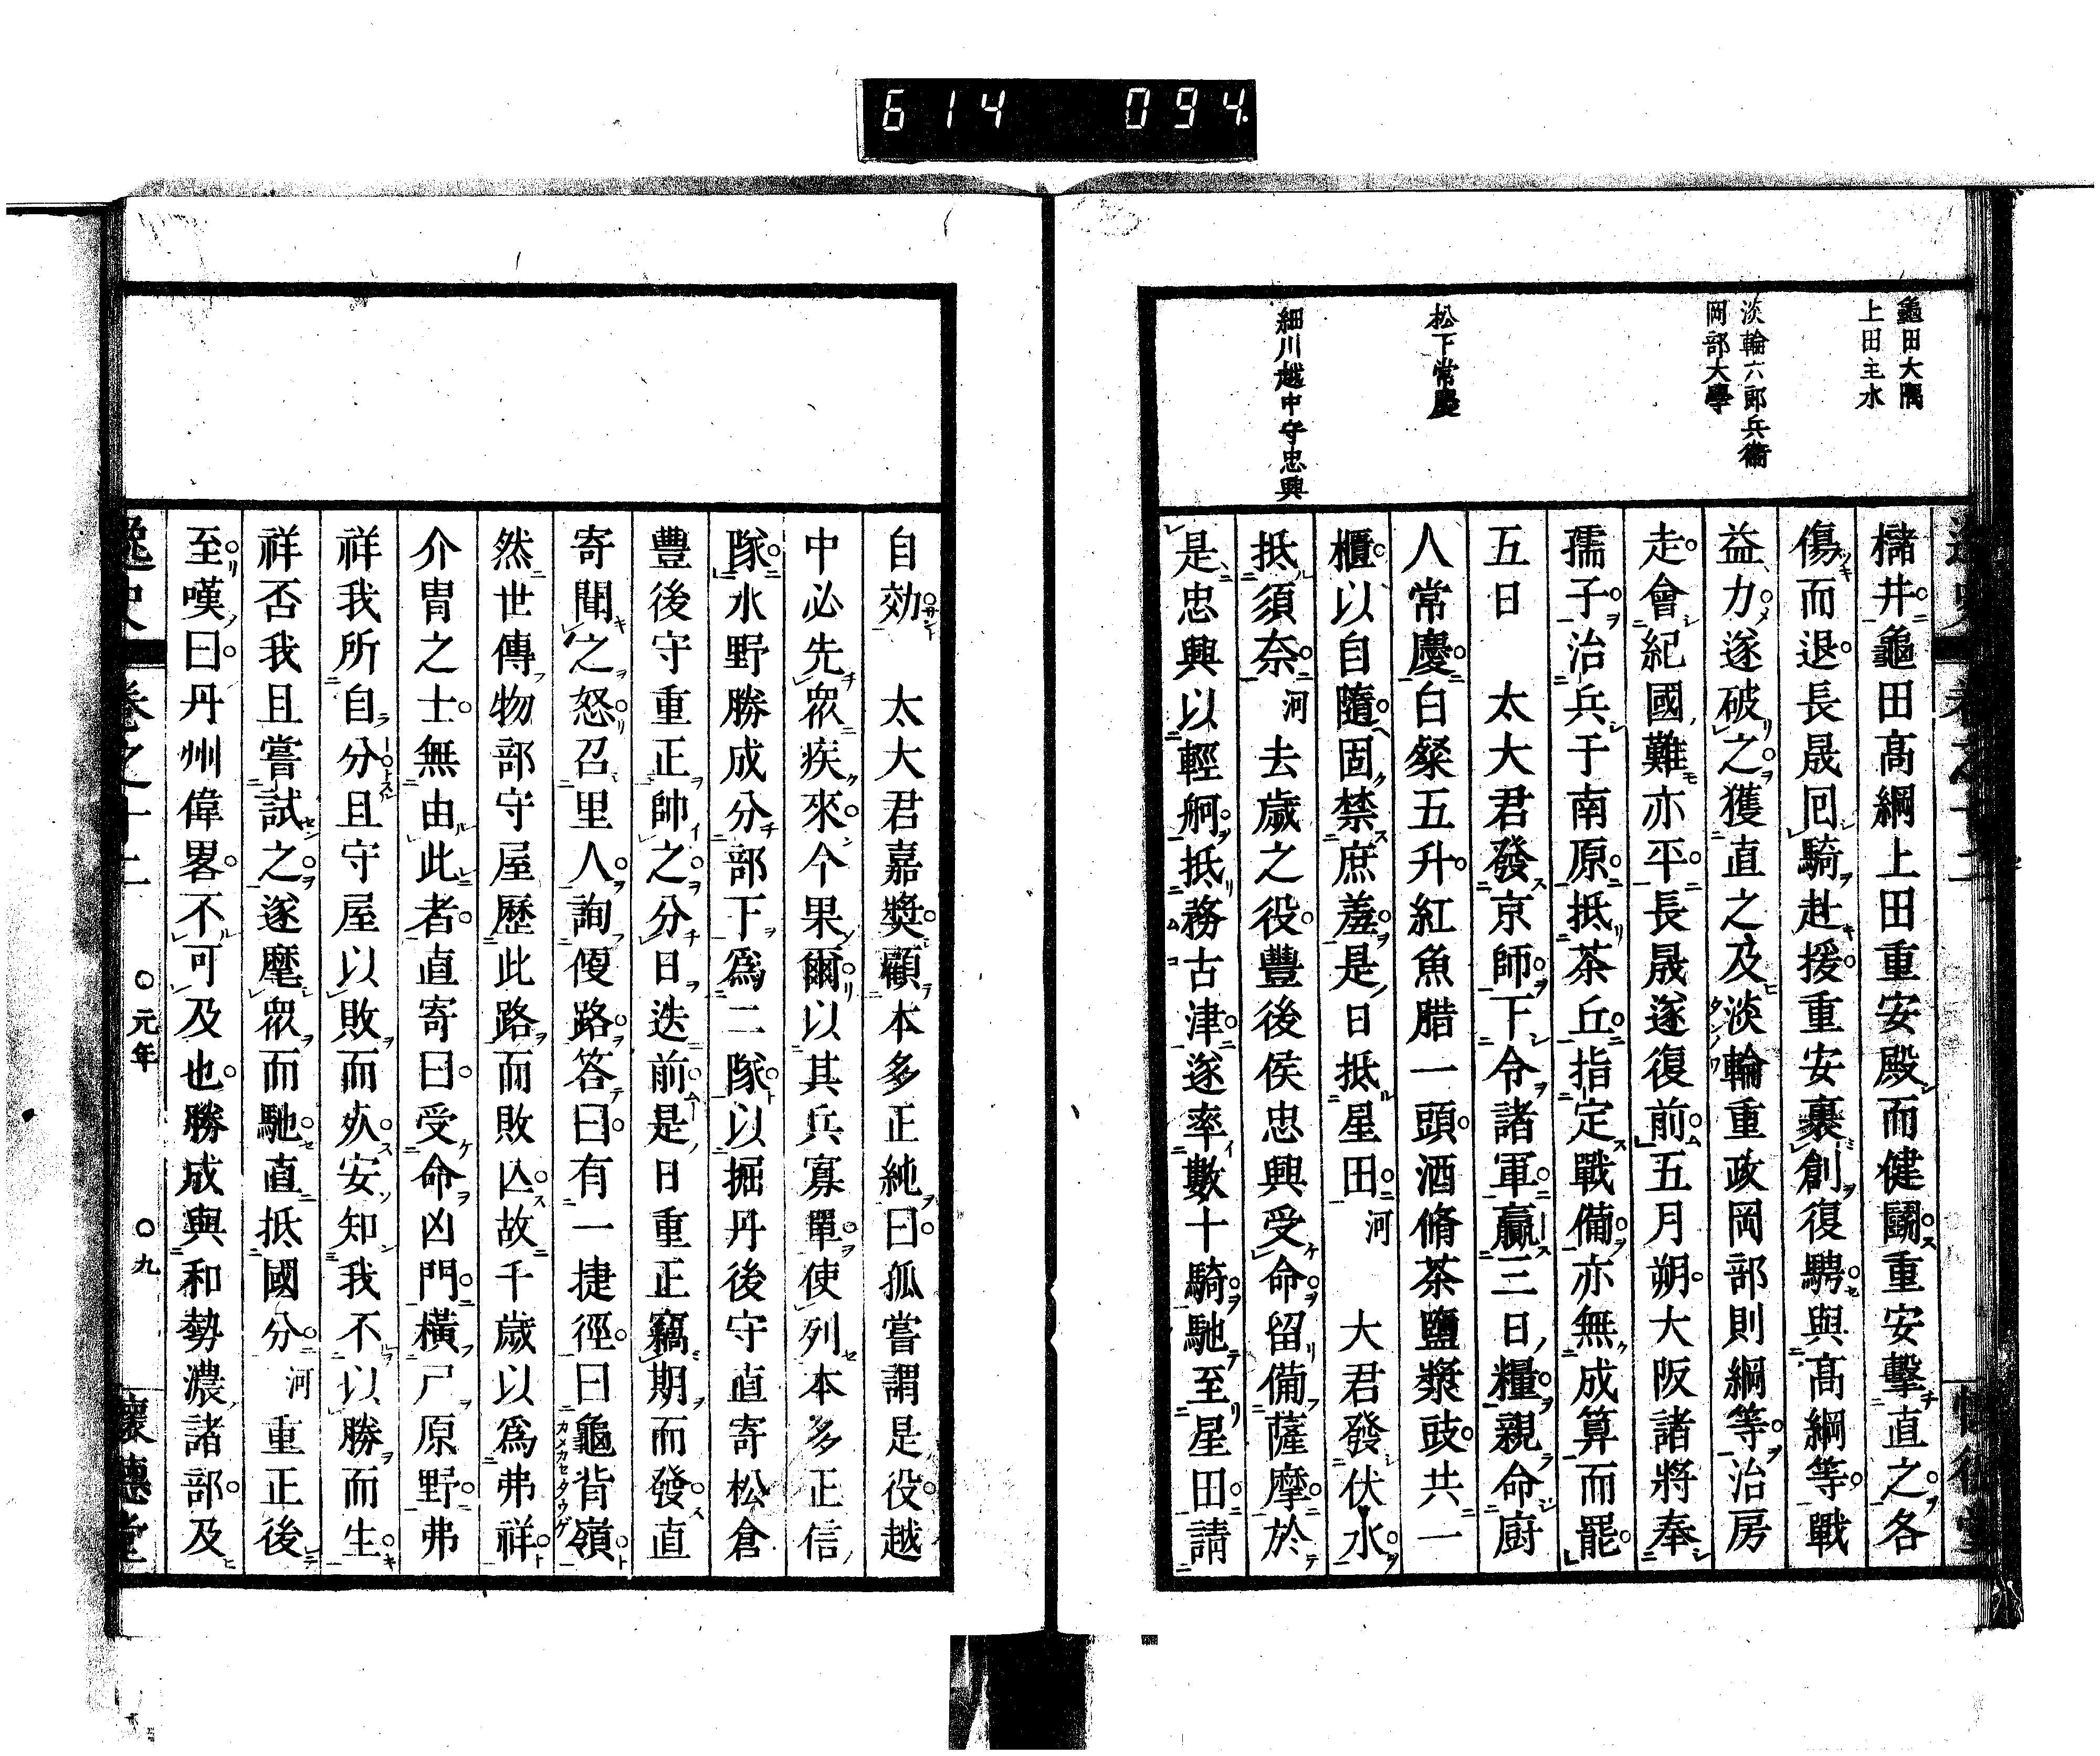 614 094
龜田大隅
上田主水
淡輪六郎兵衞
岡部大學
松下常慶
細川越中守忠興
櫧井龜田高綱上田重安殿而健鬭重安擊直之各
傷而退長晟囘騎赴援重安裹創復騁與高綱等戰
益力遂破之獲直之及淡輪重政岡部則綱等治房
走會紀國難亦平長晟遂復前五月朔大阪諸將奉
孺子治兵于南原抵茶丘指定戰備亦無成算而罷
五日　太大君發京師下令諸軍贏三日糧親命廚
人常慶白粲五升紅魚腊一頭酒脩茶鹽漿豉共一
櫃以自隨固禁庶羞是日抵星田河　大君發伏水
抵須奈河去歲之役豐後侯忠興受命留備薩摩於
是忠興以輕舸抵務古津遂率數十騎馳至星田請
自効　太大君嘉奬顧本多正純曰孤嘗謂是役越
中必先衆疾來今果爾以其兵寡單使列本多正信
隊水野勝成分部下爲二隊以掘丹後守直寄松倉
豐後守重正帥之分日迭前是日重正竊期而發直
寄聞之怒召里人詢傁路答曰有一捷徑曰龜背嶺
然世傳物部守屋歷此路而敗亾故千歲以爲弗祥
介冑之士無由此者直寄曰受命凶門橫尸原野弗
祥我所自分且守屋以敗而死安知我不以勝而生
祥否我且嘗試之遂麾衆而馳直抵國分河重正後
至嘆曰丹州偉畧不可及也勝成與和勢濃諸部及
逸史 卷之十二 ○元年 ○九 懷德堂